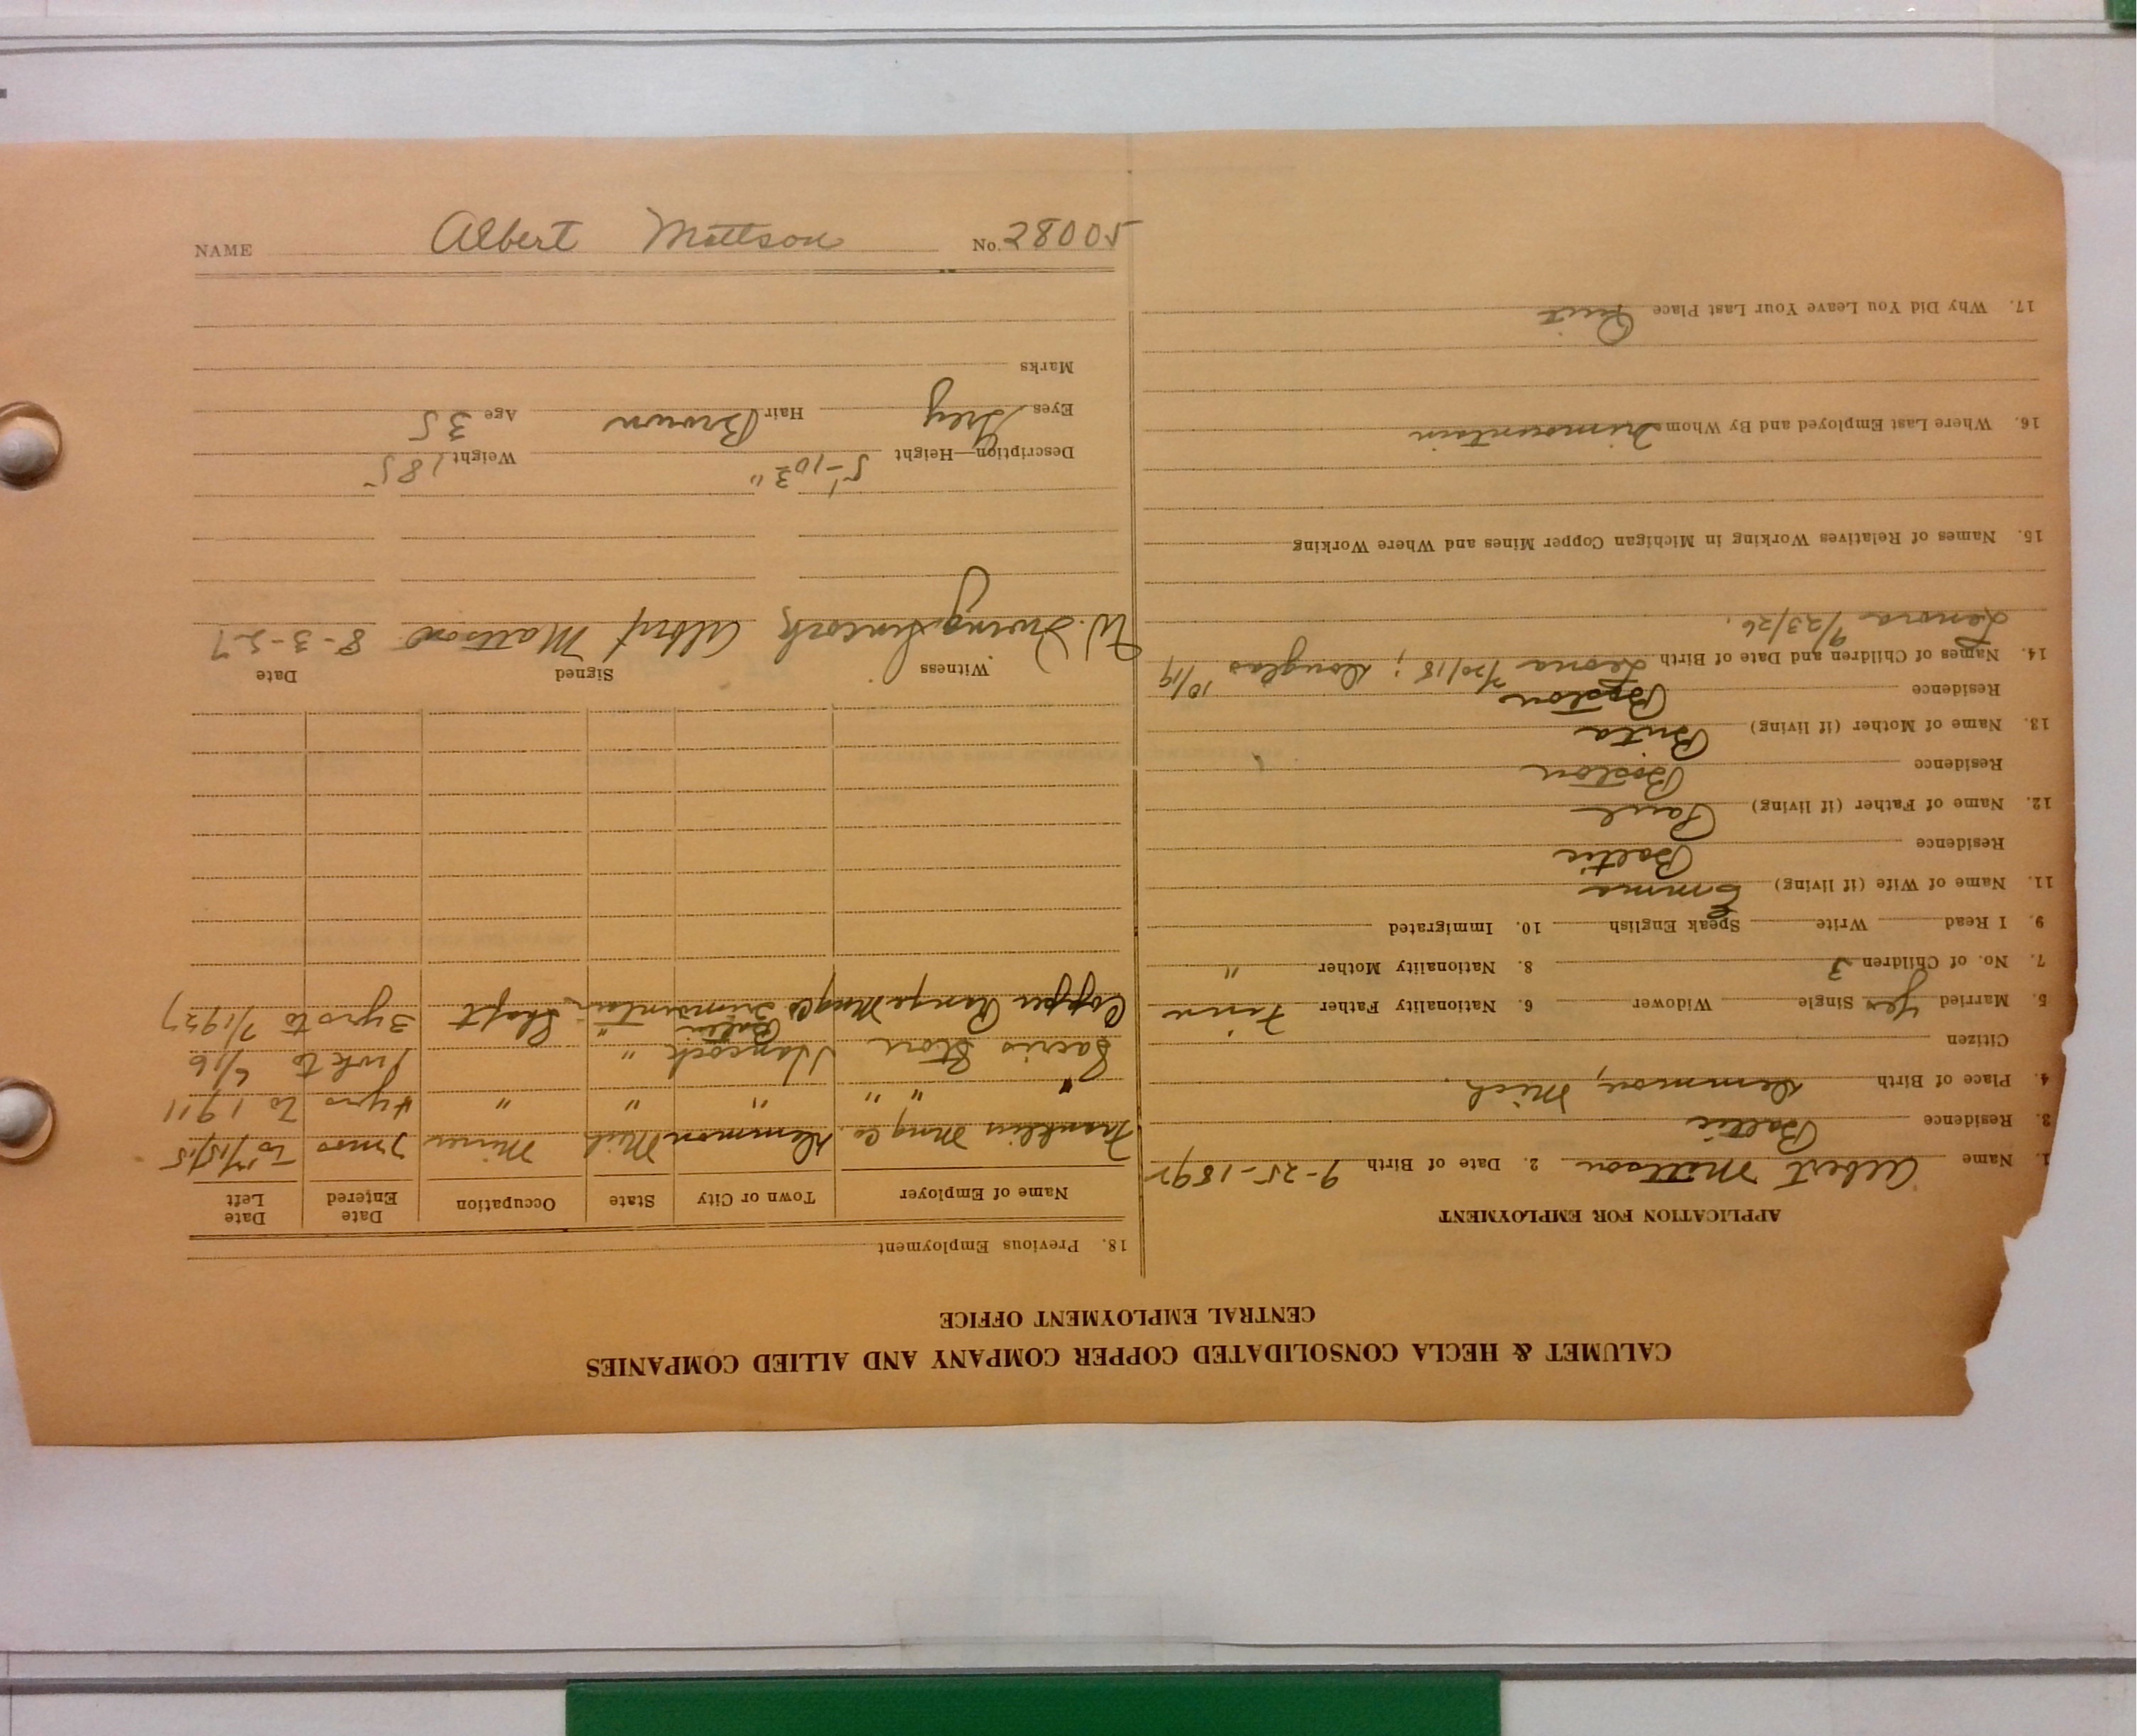 CALUMET & HECLA CONSOLIDATED COPPER COMPANY AND ALLIED COMPANIES
CENTRAL EMPLOYMENT OFFICE
APPLICATION FOR EMPLOYMENT
1. Name Albert Mattson 2. Date of Birth 9-25-1892
3. Residence Baltic
4. Place of Birth Demmon, Mich.
Citizen
5. Married Yes Single Widower 6. Nationality Father Finn
7. No. of Children 3 8. Nationality Mother "
9. I Read Write Speak English 10. Immigrated
11. Name of Wife (if living) Emma
Residence Baltic
12. Name of Father (if living) Paul
Residence Boston
13. Name of Mother (if living) Brita
Residence Boston
14. Names of Children and Date of Birth Leona 7/20/18; Douglas 10/19
Lenora 9/23/26.
15. Names of Relatives Working in Michigan Copper Mines and Where Working
16. Where Last Employed and By Whom Trimountain
17. Why Did You Leave Your Last Place Quit
18. Previous Employment
Name of Employer Town or City State Occupation Date Entered Date Left
Franklin Mng Co. Demmon Mich Miner 7 mos to 12/15/15
" " " " " " 4 yrs to 1911
Store Hancock " 1 wk to 6/16
Copper Range Mng Co Trimountain Baltic " Shaft 3 yrs to 7/1927
Witness Signed Date
W. Irving Albert Mattson 8-3-27
Description—Height 5'-10 3/4" Weight 185
Eyes Grey Hair Brown Age 35
Marks
NAME Albert Mattson No. 28005